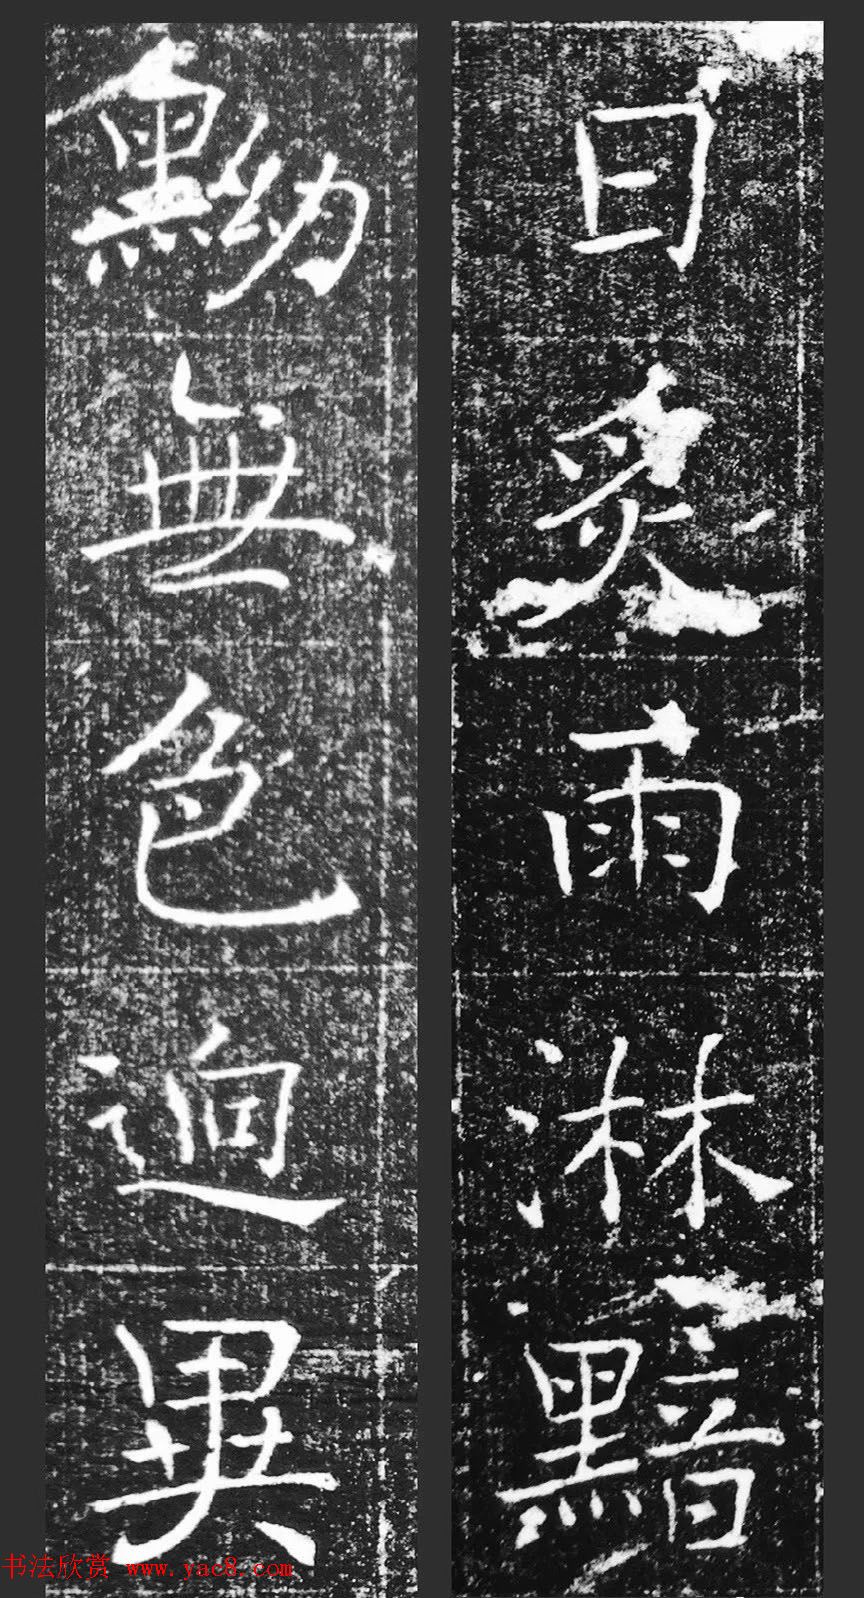 日炙雨淋黯
黝無色迥異
书法欣赏 www.yac8.com